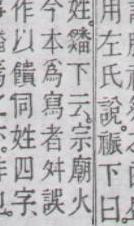 用左氏說。祳下曰。
姓。下云。宗廟火
今本爲寫者舛誤
作以饋同姓四字